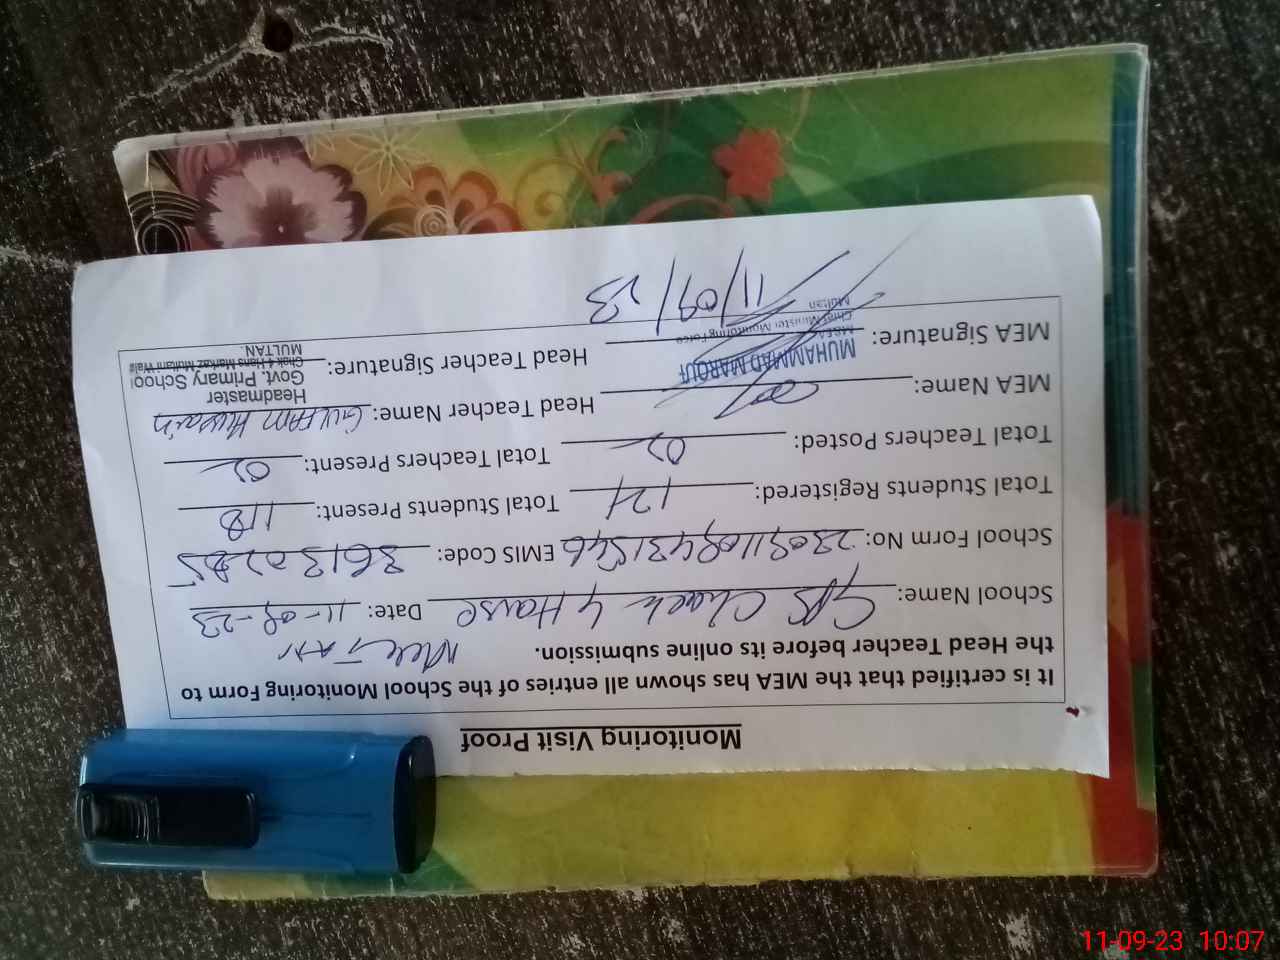 Monitoring Visit Proof
It is certified that the MEA has shown all entries of the School Monitoring Form to
the Head Teacher before its online submission.
School Name: GPS Chack 4 Hanse Date: 11-09-23
School Form No: EMIS Code:
Total Students Registered: 121 Total Students Present: 118
Total Teachers Posted: 02 Total Teachers Present: 02
MEA Name: Head Teacher Name: Gulam Husain
MEA Signature: Head Teacher Signature:
MUHAMMAD MAROUF
MEA
Chief Minister Monitoring Force
Multan
Headmaster
Govt. Primary School
Chak 4 Hans Markaz Multani Wala
MULTAN.
11/09/23
11-09-23 10:07